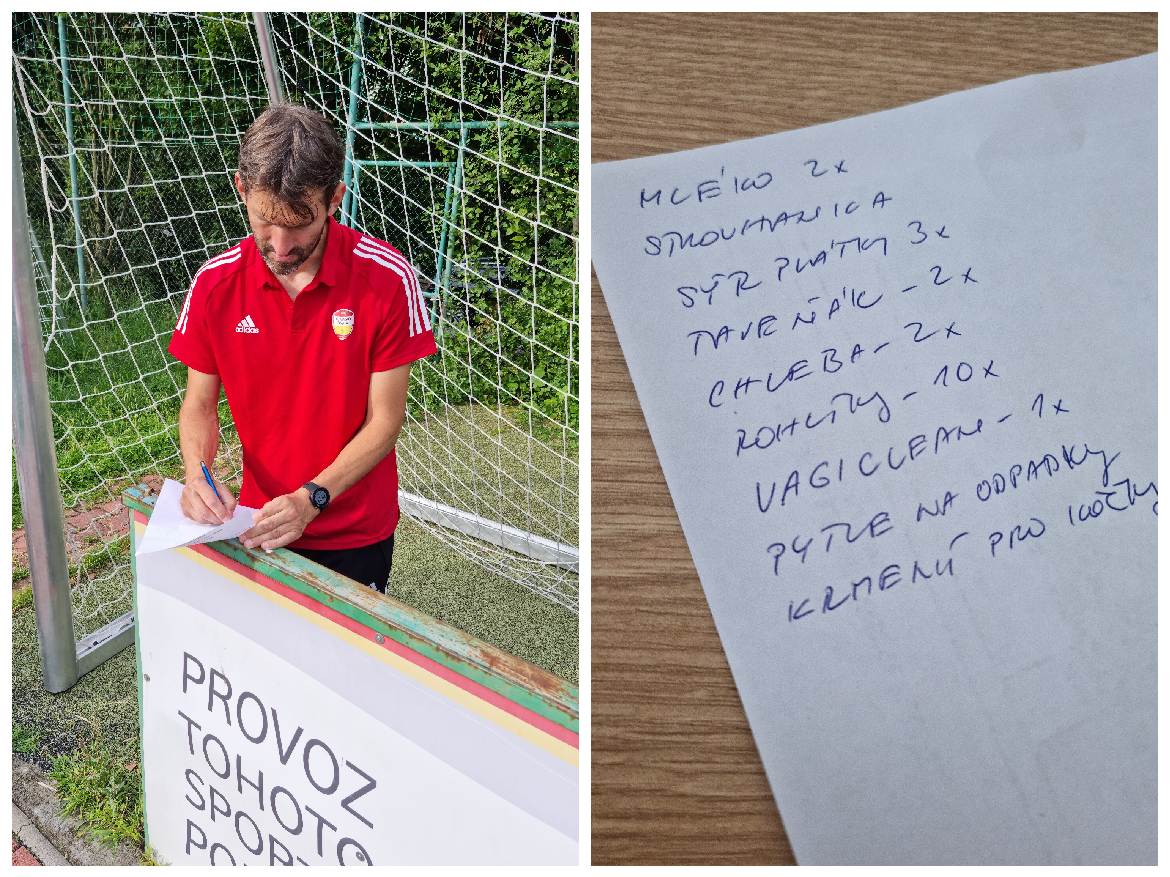 adidas
PROVOZ
TOHOTO
MLÉKO 2x
STROUHANKA
SÝR PLÁTKY 3x
TAVEŇÁK - 2x
CHLEBA - 2x
ROHLÍKY - 10x
VAGICLEAN - 1x
PYTLE NA ODPADKY
KRMENÍ PRO KOČKY